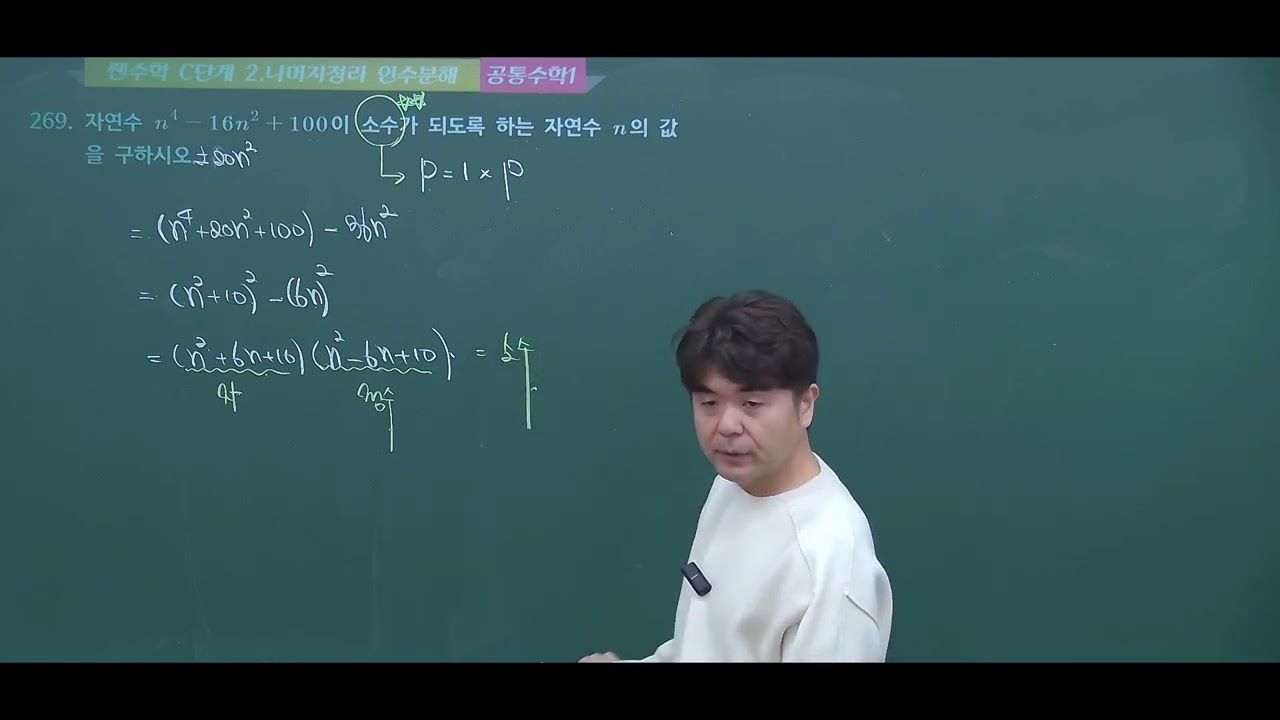 쎈수학 C단계 2.나머지정리 인수분해 공통수학1
269. 자연수 n⁴ − 16n² + 100이 소수가 되도록 하는 자연수 n의 값
을 구하시오. ±20n²
p = 1 × p
= (n⁴+20n²+100) − 36n²
= (n²+10)² − (6n)²
= (n²+6n+10)(n²−6n+10). = 소수
자 정수